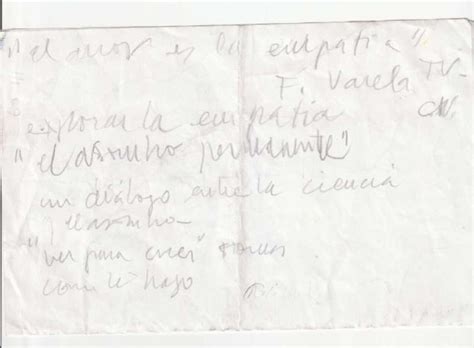 "el amor es la empatia"
F. Varela TV-
explorar la empatia
"el asombro permanente"
un diálogo entre la ciencia
y el asombro
"ver para creer"
como le hago